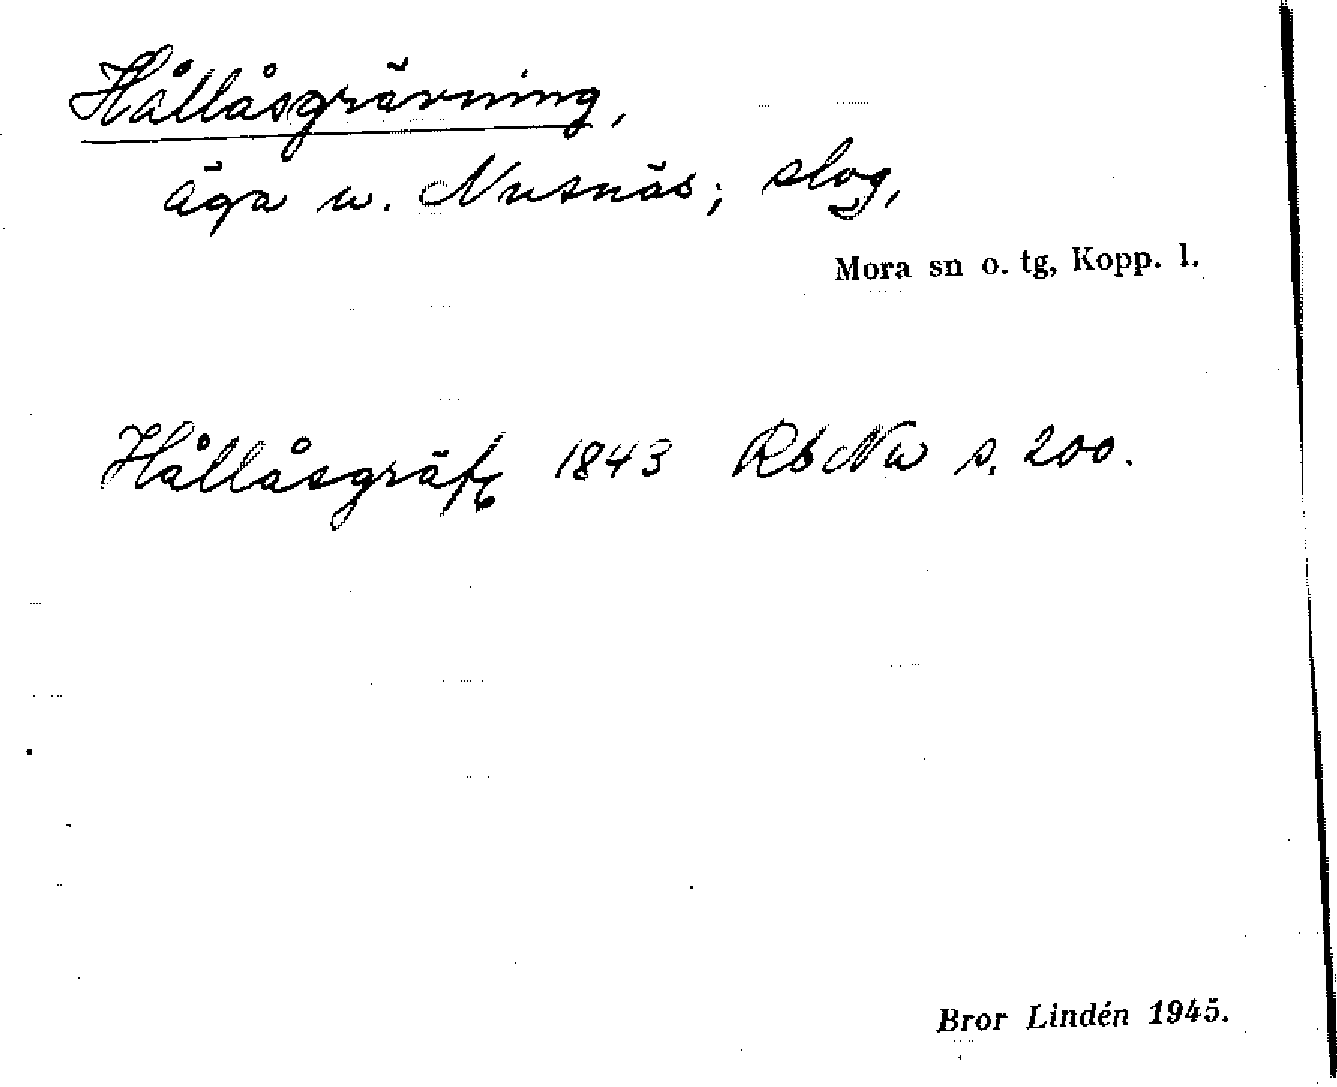 Hållåsgrävning,
äga u. Nusnäs; slog,
Mora sn o. tg, Kopp. l.
Hållåsgräfg 1843 Rb Nu s. 200.
Bror Lindén 1945.